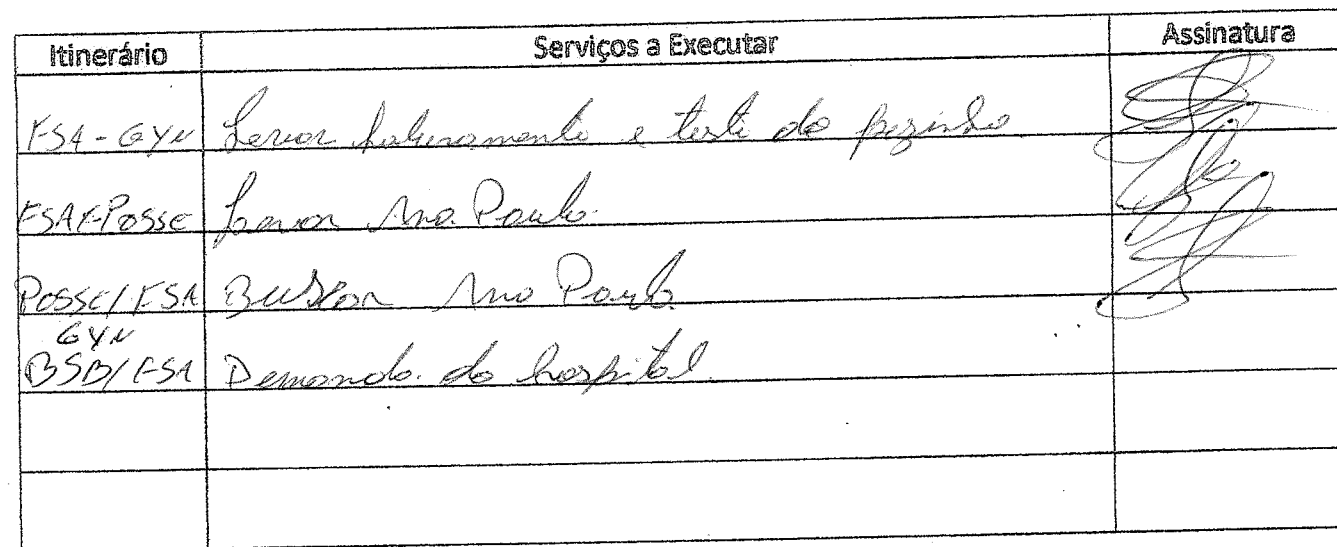 Itinerário Serviços a Executar Assinatura
FSA-GYN Levar faturamento e teste do pezinho.
FSA/-POSSE Levar Ana Paula.
POSSE/FSA Buscar Ana Paula
GYN
BSB/FSA Demanda do hospital.